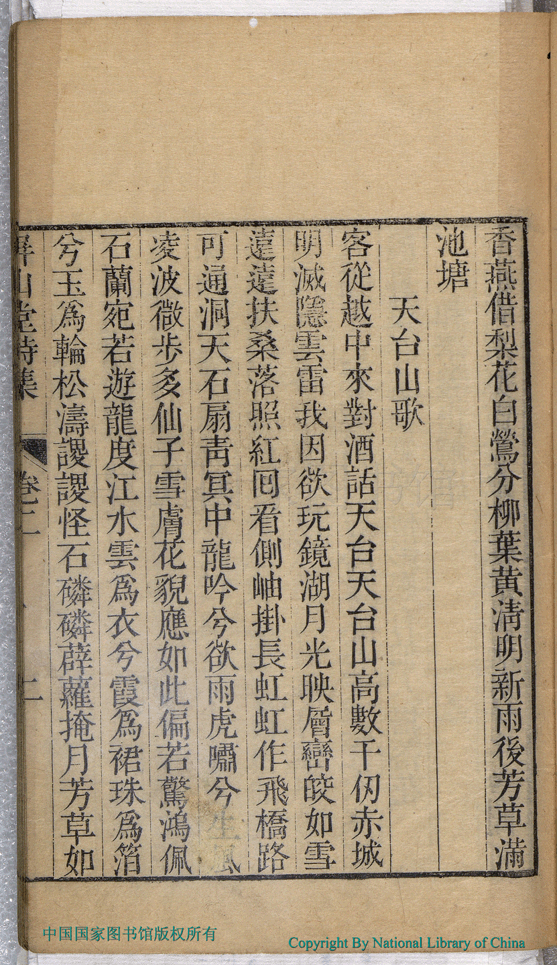 香燕借梨花白鶯分柳葉黃清明新雨後芳草滿
池塘
天台山歌
客從越中來對酒話天台天台山高數千仞赤城
明滅隱雲雷我因欲玩鏡湖月光映層巒皎如雪
遠遠扶桑落照紅囘看側岫掛長虹虹作飛橋路
可通洞天石扇靑冥中龍吟兮欲雨虎嘯兮生風
凌波微步多仙子雪膚花貌應如此偏若驚鴻佩
石蘭宛若遊龍度江水雲爲衣兮霞爲裙珠爲箔
兮玉爲輪松濤謖謖怪石磷磷薜蘿掩月芳草如
屏山堂詩集
卷二
中国国家图书馆版权所有
Copyright By National Library of China